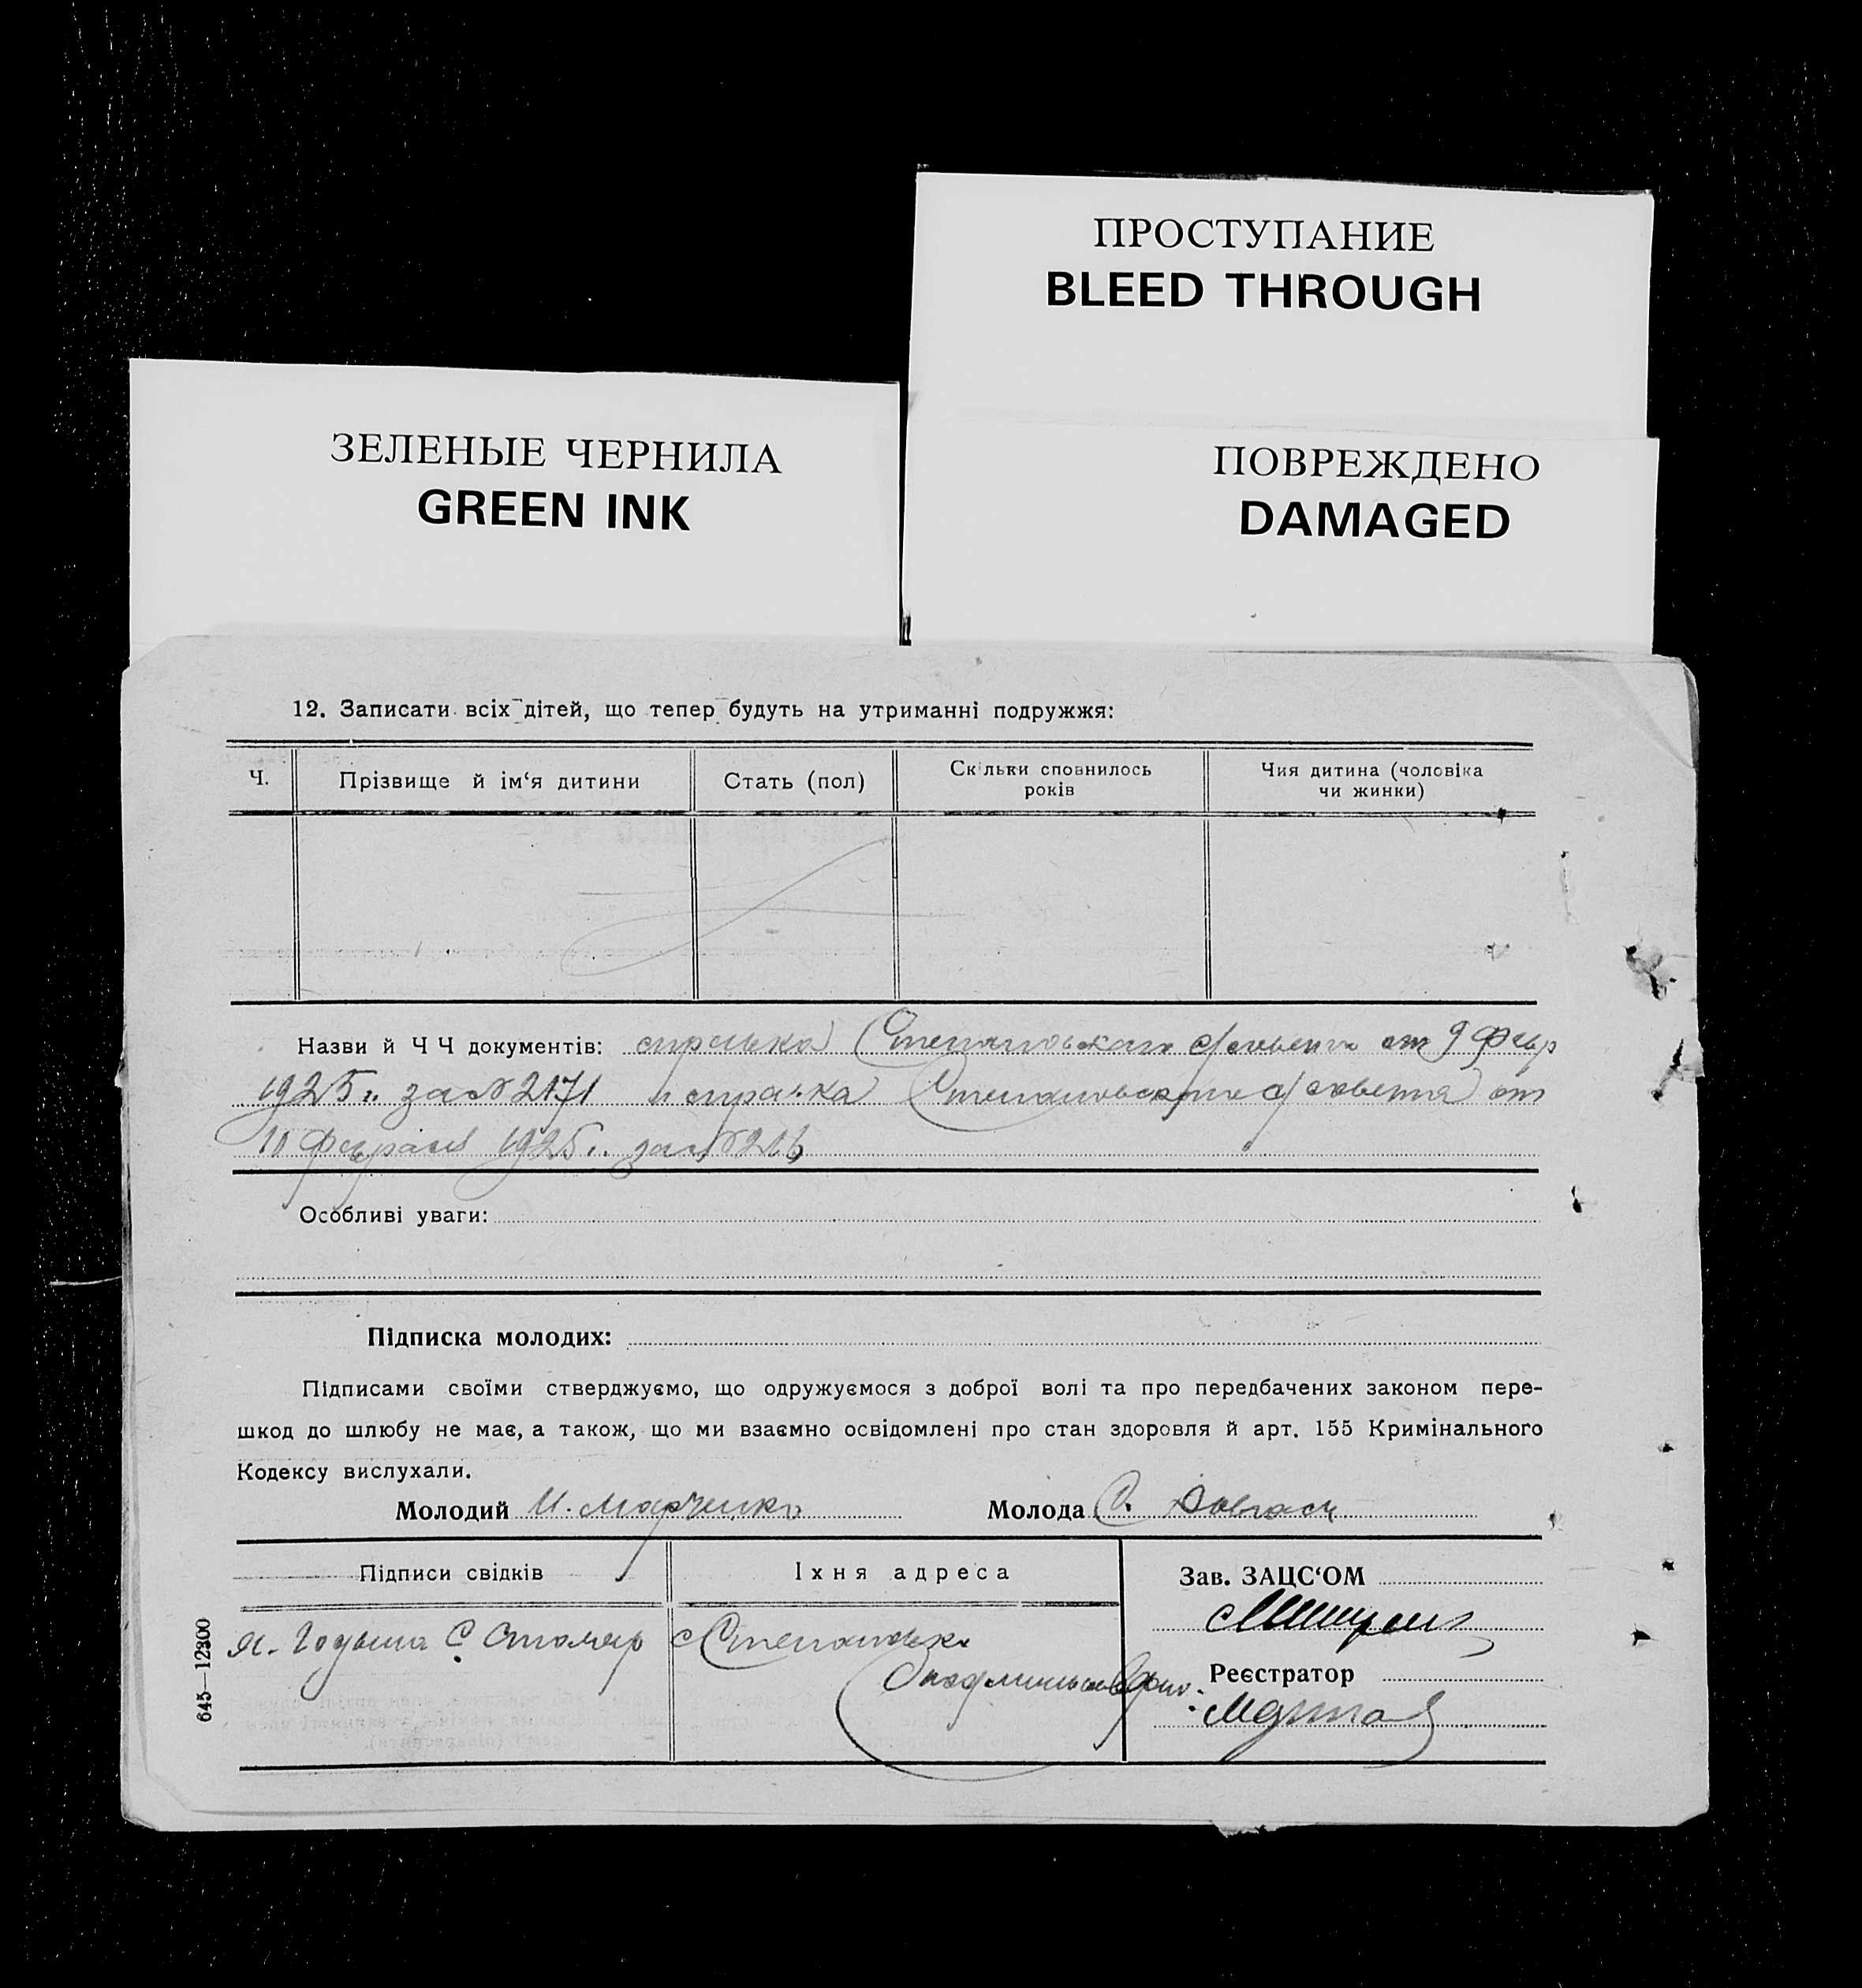 ПРОСТУПАНИЕ
BLEED THROUGH
ЗЕЛЕНЫЕ ЧЕРНИЛА
GREEN INK
ПОВРЕЖДЕНО
DAMAGED
12. Записати всіх дітей, що тепер будуть на утриманні подружжя:
Ч.
Прізвище й ім‘я дитини
Стать (пол)
Скільки сповнилось
років
Чия дитина (чоловіка
чи жинки)
Назви й Ч Ч документів: справка от 9 Февр
1925 г. за № 2171 и справка с/совета от
10 февраля 1925 г. за №
Особливі уваги:
Підписка молодих:
Підписами своїми стверджуємо, що одружуємося з доброї волі та про передбачених законом пере-
шкод до шлюбу не має, а також, що ми взаємно освідомлені про стан здоровля й арт. 155 Кримінального
Кодексу вислухали.
Молодий И. Марченко
Молода С. Довгаль
Підписи свідків
Їхня адреса
Зав. ЗАЦС‘ОМ
С Столяр с Степановка
Реєстратор
645—12300